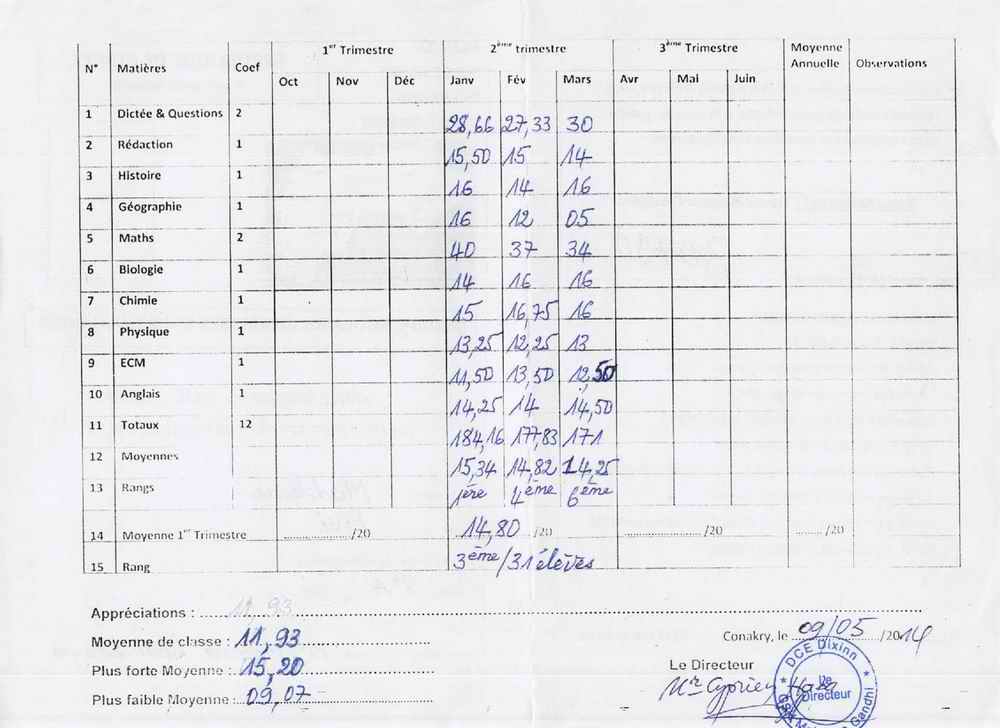 1er Trimestre 2ème trimestre 3ème Trimestre Moyenne Annuelle Observations
N° Matières Coef Oct Nov Déc Janv Fév Mars Avr Mai Juin
1 Dictée & Questions 2 28,66 27,33 30
2 Rédaction 1 15,50 15 14
3 Histoire 1 16 14 16
4 Géographie 1 16 12 05
5 Maths 2 40 37 34
6 Biologie 1 14 16 16
7 Chimie 1 15 16,75 16
8 Physique 1 13,25 12,25 13
9 ECM 1 11,50 13,50 12,50
10 Anglais 1 14,25 14 14,50
11 Totaux 12 184,16 177,83 171
12 Moyennes 15,34 14,82 14,25
13 Rangs 1ère 4ème 6ème
14 Moyenne 1er Trimestre ............/20 14,80 /20 ............/20 ....../20
15 Rang 3ème/31 élèves
Appréciations : 11,93
Moyenne de classe : 11,93
Conakry, le 09/05 /2014
Plus forte Moyenne : 15,20
Le Directeur
Plus faible Moyenne : 09,07
Mr Cyprien
DCE Dixinn
Le Directeur
Gandhi